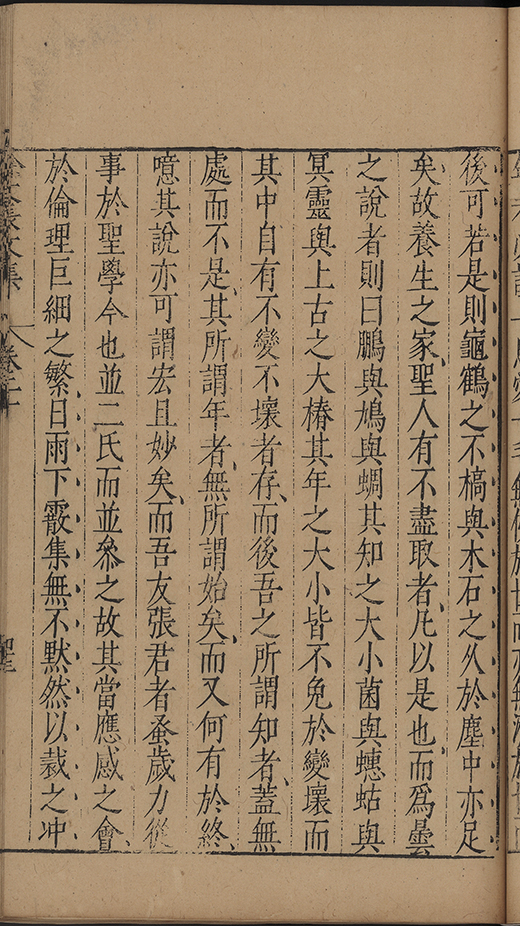 後可若是則龜鶴之不槁與木石之乆於塵中亦足
矣故養生之家聖人有不盡取者凡以是也而爲曇
之說者則曰鵬與鳩與蜩其知之大小菌與蟪蛄與
冥靈與上古之大椿其年之大小皆不免於變壞而
其中自有不變不壞者存而後吾之所謂知者蓋無
處而不是其所謂年者無所謂始矣而又何有於終
噫其說亦可謂宏且妙矣而吾友張君者蚤歲力從
事於聖學今也並二氏而並叅之故其當應感之會
於倫理巨細之繁日雨下霰集無不黙然以裁之冲
徐文長文集 卷二十